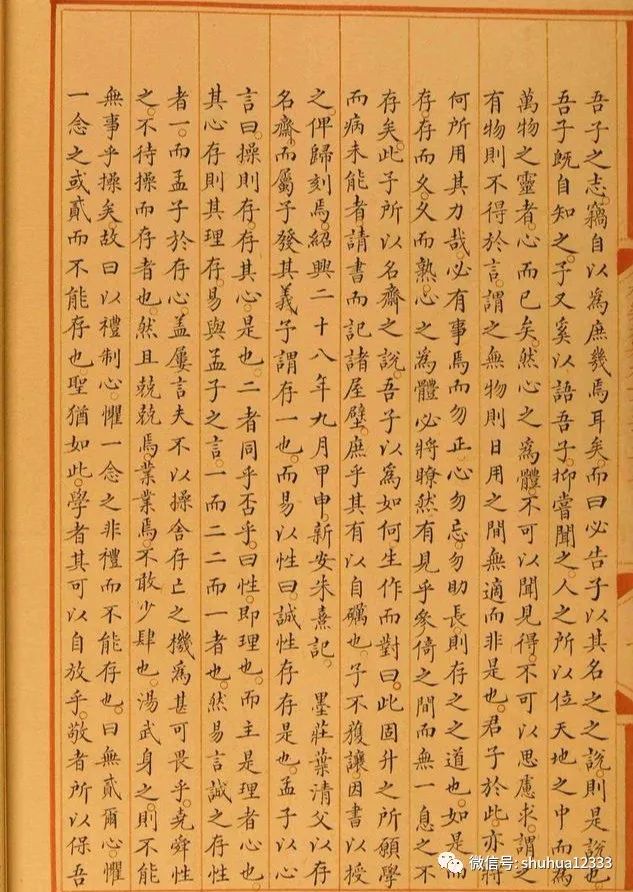 吾子之志。竊自以爲庶幾焉耳矣。而曰必告子以其名之之說。則是說也。
吾子旣自知之。予又奚以語吾子。抑嘗聞之。人之所以位天地之中而爲
萬物之靈者。心而已矣。然心之爲體。不可以聞見得。不可以思慮求。謂之
有物則不得於言。謂之無物則日用之間無適而非是也。君子於此。亦將
何所用其力哉。必有事焉而勿正。心勿忘。勿助長。則存之之道也。如是而
存。存而久。久而熟。心之爲體必將瞭然有見乎參倚之間而無一息之不
存矣。此予所以名齋之說。吾子以爲如何生作而對曰。此固升之所願學
而病未能者請書而記諸屋壁。庶乎其有以自礪也。予不獲讓。因書以授
之俾歸刻焉。紹興二十八年九月甲申。新安朱熹記。 墨莊葉清父以存
名齋。而屬予發其義。予謂存一也。而易以性曰。誠性存存是也。孟子以心
言曰。操則存。存其心。是也。二者同乎否乎。曰性。即理也。而主是理者心也。
其心存則其理存。易與孟子之言。一而二二而一者也。然易言誠之存性
者一。而孟子於存心。盖屢言夫不以操舍存亡之機爲甚可畏乎。堯舜性
之。不待操而存者也。然且兢兢焉。業業焉。不敢少肆也。湯武身之。則不能
無事乎操矣。故曰以禮制心。懼一念之非禮而不能存也。曰無貳爾心。懼
一念之或貳而不能存也聖猶如此。學者其可以自放乎。敬者所以保吾
微信号: shuhua12333